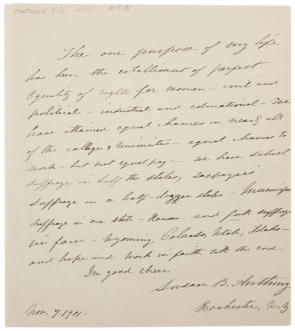 The one purpose of my life
has been the establishment of perfect
Equality of rights for women - civil and
political - industrial and educational - We
have attained equal chances in nearly all
of the colleges & universities - equal chances to
work - but not equal pay - we have school
suffrage in half the states, taxpayers'
suffrage in a half-dozen states - Municipal
suffrage in one state - Kansas - and full suffrage
in four - Wyoming, Colorado, Utah, Idaho -
and hope and work in faith till the end -
In good cheer
Susan B. Anthony
Nov. 7, 1901 -
Rochester, N.Y.